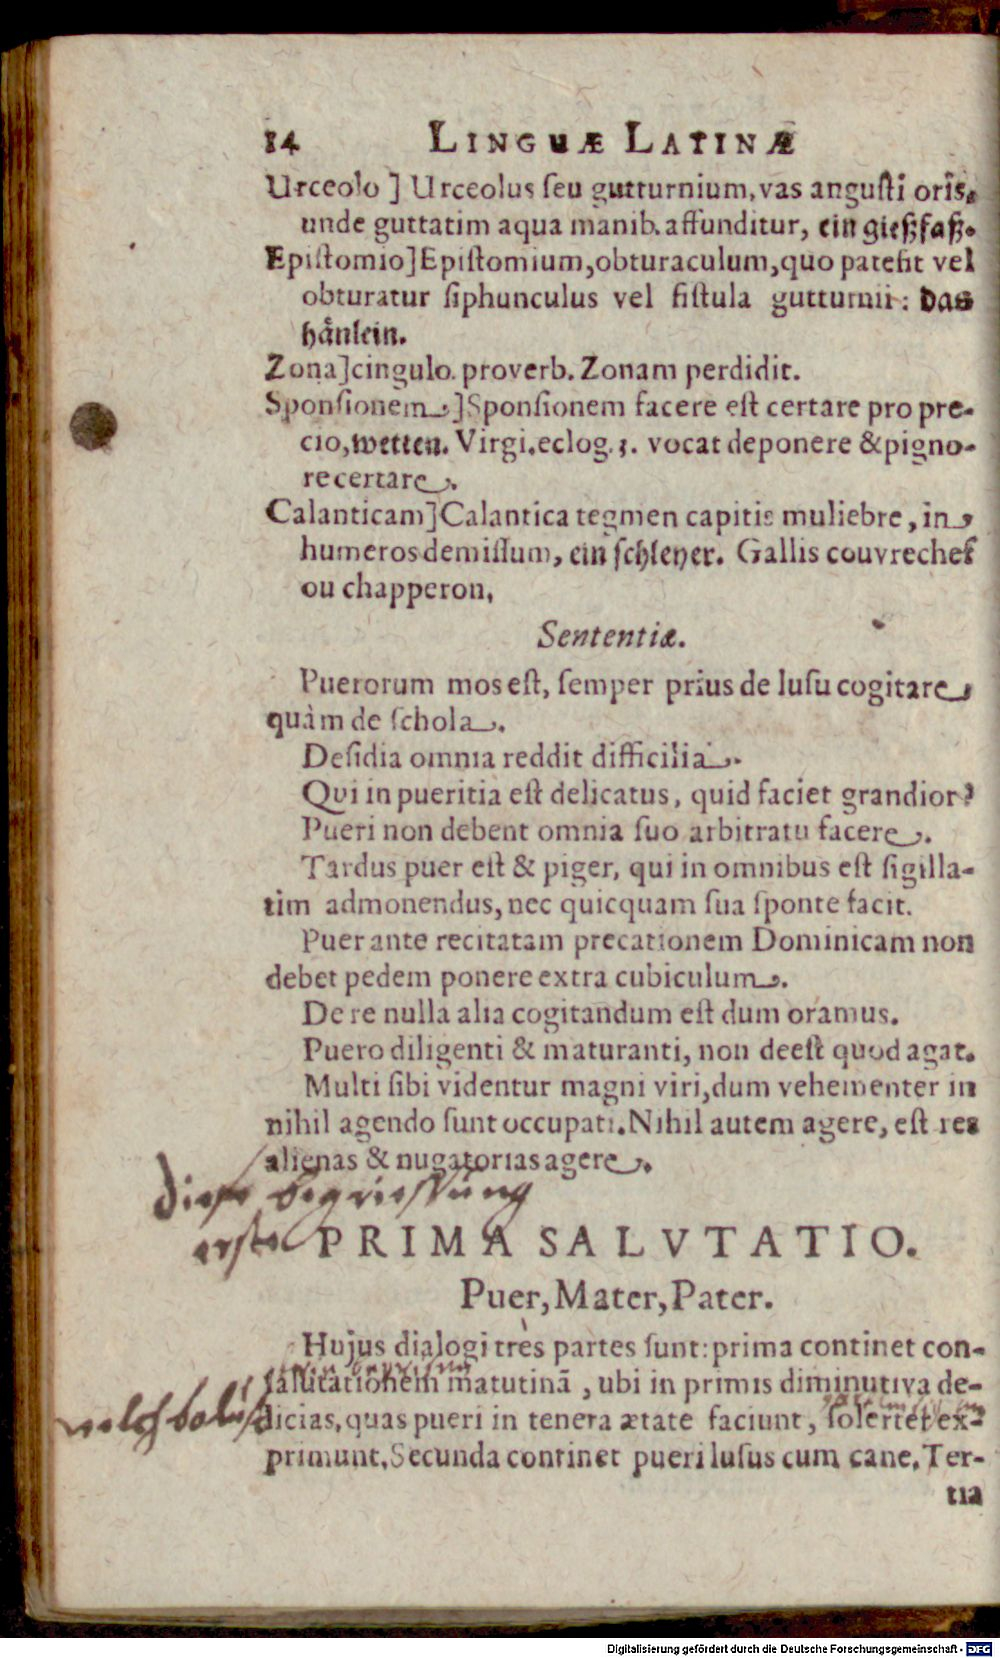 14 LINGUÆ LATINÆ
Urceolo ] Urceolus ſeu gutturnium, vas anguſti oris,
unde guttatim aqua manib. affunditur, ein gießfaß.
Epiſtomio] Epiſtomium, obturaculum, quo patefit vel
obturatur ſiphunculus vel fiſtula gutturnii: das
hånlein.
Zona] cingulo. proverb. Zonam perdidit.
Sponſionem] Sponſionem facere eſt certare pro pre-
cio, wetten. Virgi. eclog. 3. vocat deponere & pigno-
re certare.
Calanticam] Calantica tegmen capitis muliebre, in
humeros demiſſum, ein ſchleyer. Gallis couvrechef
ou chapperon,
Sententiæ.
Puerorum mos eſt, ſemper prius de luſu cogitare
quàm de ſchola.
Deſidia omnia reddit difficilia.
Qui in pueritia eſt delicatus, quid faciet grandior?
Pueri non debent omnia ſuo arbitratu facere.
Tardus puer eſt & piger, qui in omnibus eſt ſigilla-
tim admonendus, nec quicquam ſua ſponte facit.
Puer ante recitatam precationem Dominicam non
debet pedem ponere extra cubiculum.
De re nulla alia cogitandum eſt dum oramus.
Puero diligenti & maturanti, non deeſt quod agat.
Multi ſibi videntur magni viri, dum vehementer in
nihil agendo ſunt occupati. Nihil autem agere, eſt res
alienas & nugatorias agere.
PRIMA SALVTATIO.
Puer, Mater, Pater.
Hujus dialogi tres partes ſunt: prima continet con-
ſalutationem matutinã, ubi in primis diminutiva de-
licias, quas pueri in tenera ætate faciunt, ſolertet ex-
primunt. Secunda continet pueri luſus cum cane. Ter-
tia
Digitalisierung gefördert durch die Deutsche Forschungsgemeinschaft - DFG